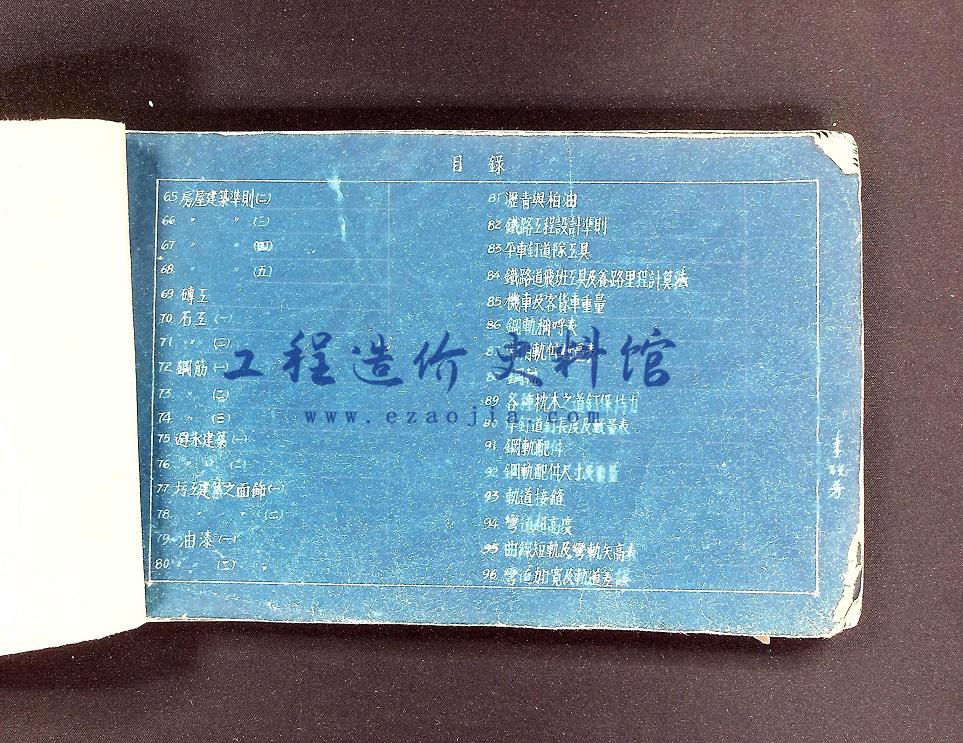 目錄
65 房屋建築準則(二)
66 〃 〃 (三)
67 〃 〃 (四)
68 〃 〃 (五)
69 磚工
70 石工 (一)
71 〃 (二)
72 鋼筋 (一)
73 〃 (二)
74 〃 (三)
75 避水建築 (一)
76 〃 〃 (二)
77 圬工建築之面飾 (一)
78 〃 〃 (二)
79 油漆 (一)
80 〃 (二)
81 瀝青與柏油
82 鐵路工程設計準則
83 平車釘道隊工具
84 鐵路道飛班工具及養路里程計算法
85 機車及客貨車重量
86 鋼軌稱呼表
8
8 鋼軌
89 各種枕木之道釘保持力
90 洋釘道釘長度及數量表
91 鋼軌配件
92 鋼軌配件尺寸及重量
93 軌道接縫
94 彎道超高度
95 曲線短軌及彎軌矢高表
96 彎道加寬及軌道差誤
工程造价史料馆
www.ezaojia.com